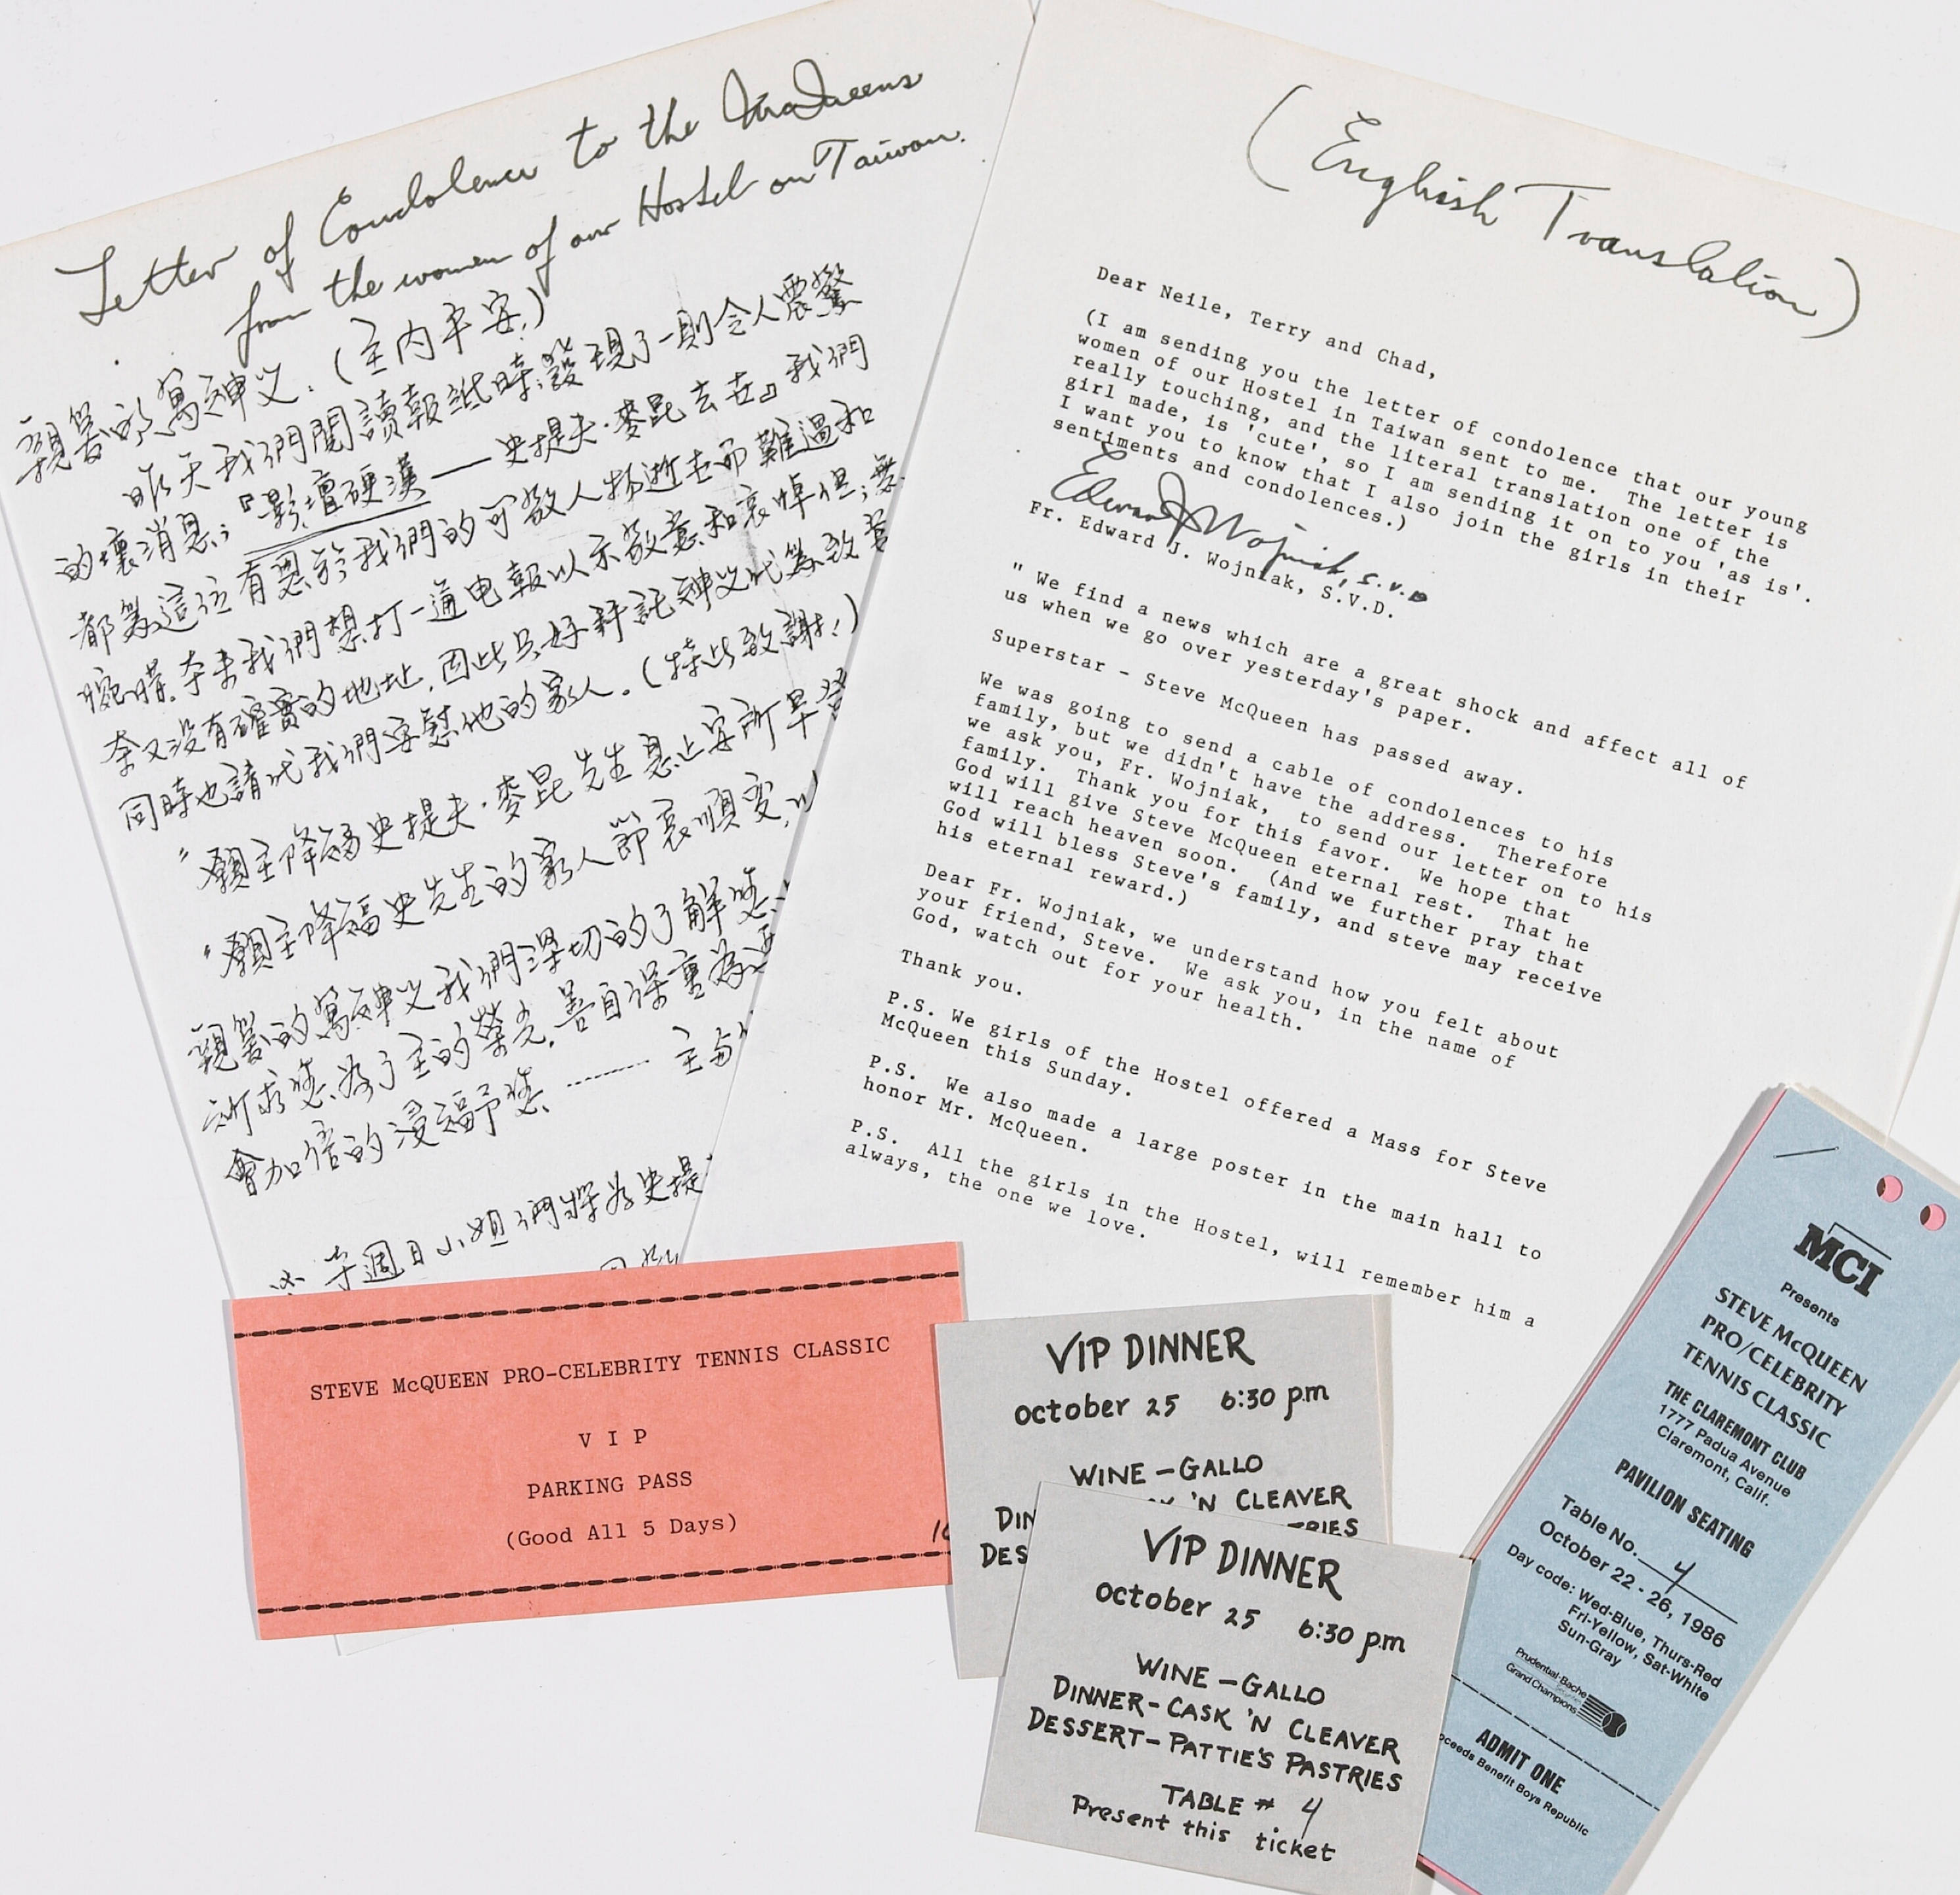 Letter of Condolence to the McQueens
from the women of our Hostel on Taiwan.
親愛的萬神父:(主内平安!)
昨天我們閱讀報紙時,發現了一則令人震驚
的壞消息;『影壇硬漢——史提夫·麥昆去世』我們
都為這位有恩於我們的可敬人物逝去而難過和
惋惜.本來我們想打一通电報以示敬意和哀悼但;無
奈又没有確實的地址,因此只好拜託神父代為致意
同時也請代我們安慰他的家人.(特此致謝!)
"願主降福史提夫·麥昆先生息止安所早登
"願主降福史先生的家人節哀順变,以
親愛的萬神父我們深切的了解您
所求您為了主的榮光,善自保重為
會加倍的浸福予您......... 主
※ 本週日小姐們將為史提
(English Translation)
Dear Neile, Terry and Chad,
(I am sending you the letter of condolence that our young
women of our Hostel in Taiwan sent to me. The letter is
really touching, and the literal translation one of the
girl made, is 'cute', so I am sending it on to you 'as is'.
I want you to know that I also join the girls in their
sentiments and condolences.)
Edward J Wojniak, S.V.D
Fr. Edward J. Wojniak, S.V.D.
" We find a news which are a great shock and affect all of
us when we go over yesterday's paper.
Superstar - Steve McQueen has passed away.
We was going to send a cable of condolences to his
family, but we didn't have the address. Therefore
we ask you, Fr. Wojniak, to send our letter on to his
family. Thank you for this favor. We hope that
God will give Steve McQueen eternal rest. That he
will reach heaven soon. (And we further pray that
God will bless Steve's family, and steve may receive
his eternal reward.)
Dear Fr. Wojniak, we understand how you felt about
your friend, Steve. We ask you, in the name of
God, watch out for your health.
Thank you.
P.S. We girls of the Hostel offered a Mass for Steve
McQueen this Sunday.
P.S. We also made a large poster in the main hall to
honor Mr. McQueen.
P.S. All the girls in the Hostel, will remember him a
always, the one we love.
STEVE McQUEEN PRO-CELEBRITY TENNIS CLASSIC
V I P
PARKING PASS
(Good All 5 Days)
VIP DINNER
October 25 6:30 pm
WINE - GALLO
'N CLEAVER
DIN
DES
VIP DINNER
October 25 6:30 pm
WINE - GALLO
DINNER - CASK 'N CLEAVER
DESSERT - PATTIE'S PASTRIES
TABLE # 4
Present this ticket
MCI
Presents
STEVE McQUEEN
PRO/CELEBRITY
TENNIS CLASSIC
THE CLAREMONT CLUB
1777 Padua Avenue
Claremont, Calif.
PAVILION SEATING
Table No. 4
October 22 - 26, 1986
Day code: Wed-Blue, Thurs-Red
Fri-Yellow, Sat-White
Sun-Gray
Prudential-Bache
Grand Champions
ADMIT ONE
oceeds Benefit Boys Republic